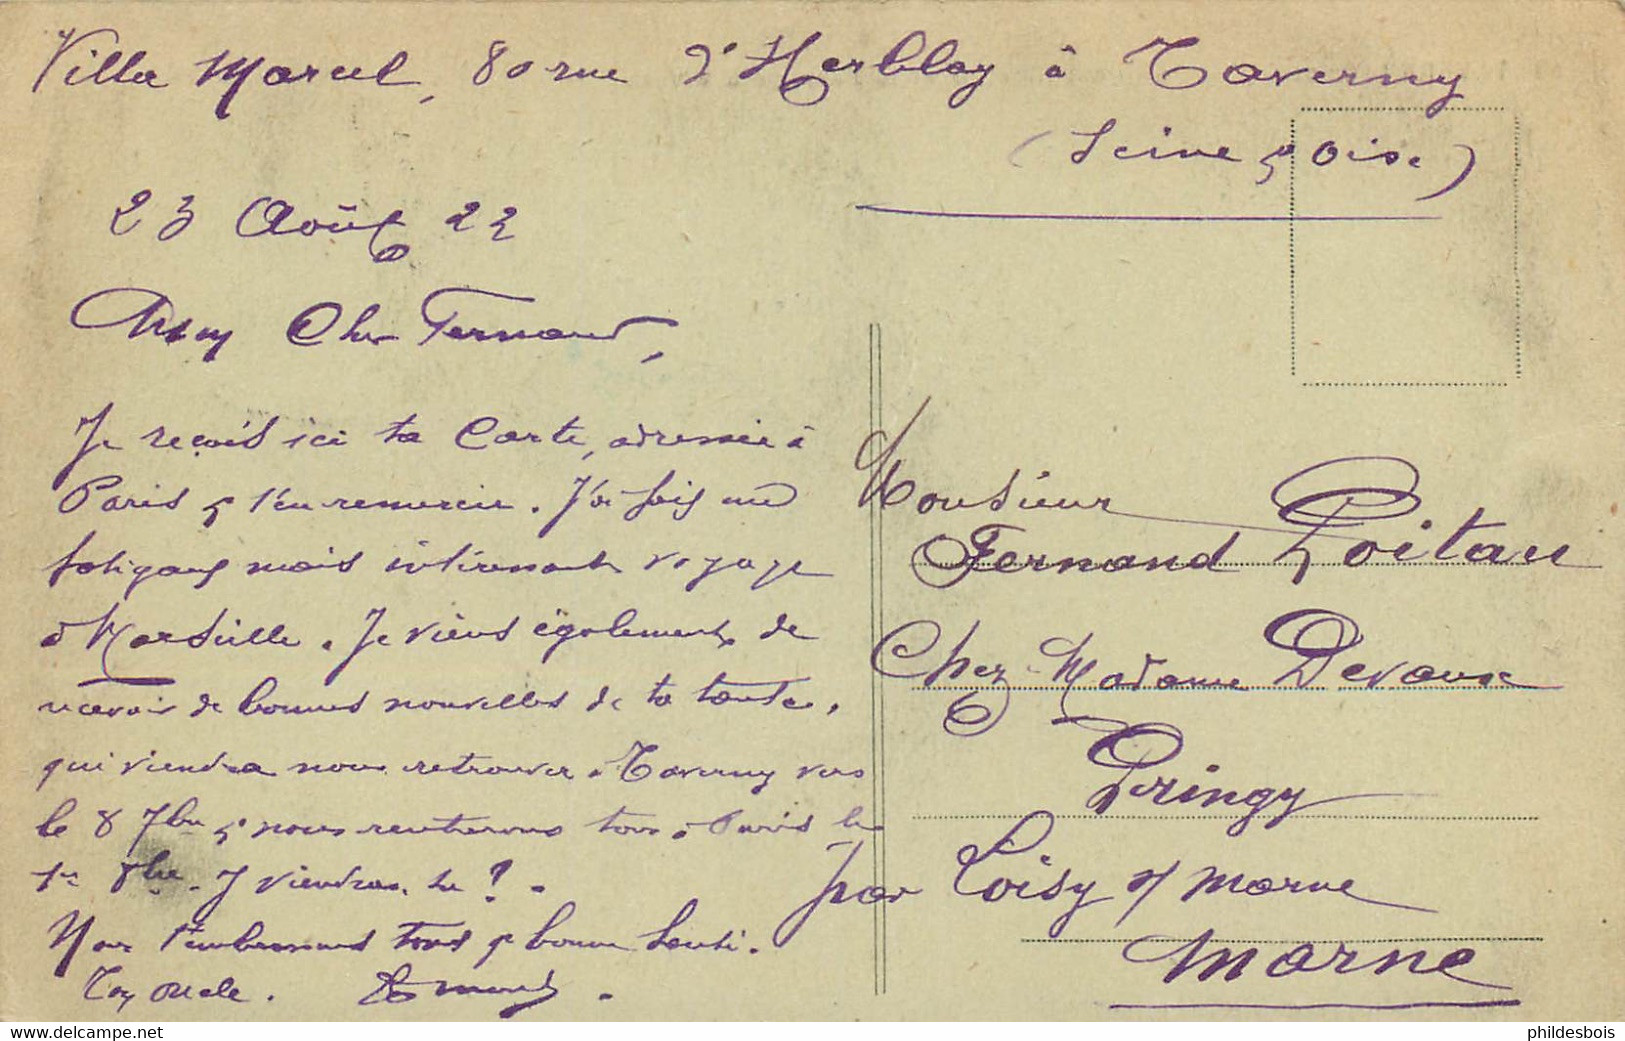 Villa Marcel, 80 rue d'Herblay à Taverny
(Seine & Oise)
23 Août 22
Mon Cher Fernand,
Je reçois ici ta Carte, adressée à
Paris & t'en remercie. J'ai fais un
fatigant mais intéressant voyage
à Marseille. Je viens également de
recevoir de bonnes nouvelles de ta tante,
qui viendra nous retrouver à Taverny vers
le 8 7bre & nous rentrerons tous à Paris le
1er 8bre. Y viendras-tu ? .
Nous t'embrassons tous & bonne Santé.
Ton oncle. Edmond.
Monsieur
Fernand Poitau
Chez Madame Devaux
Pringy
par Loisy s/ Marne
Marne
delcampe.net
phildesbois